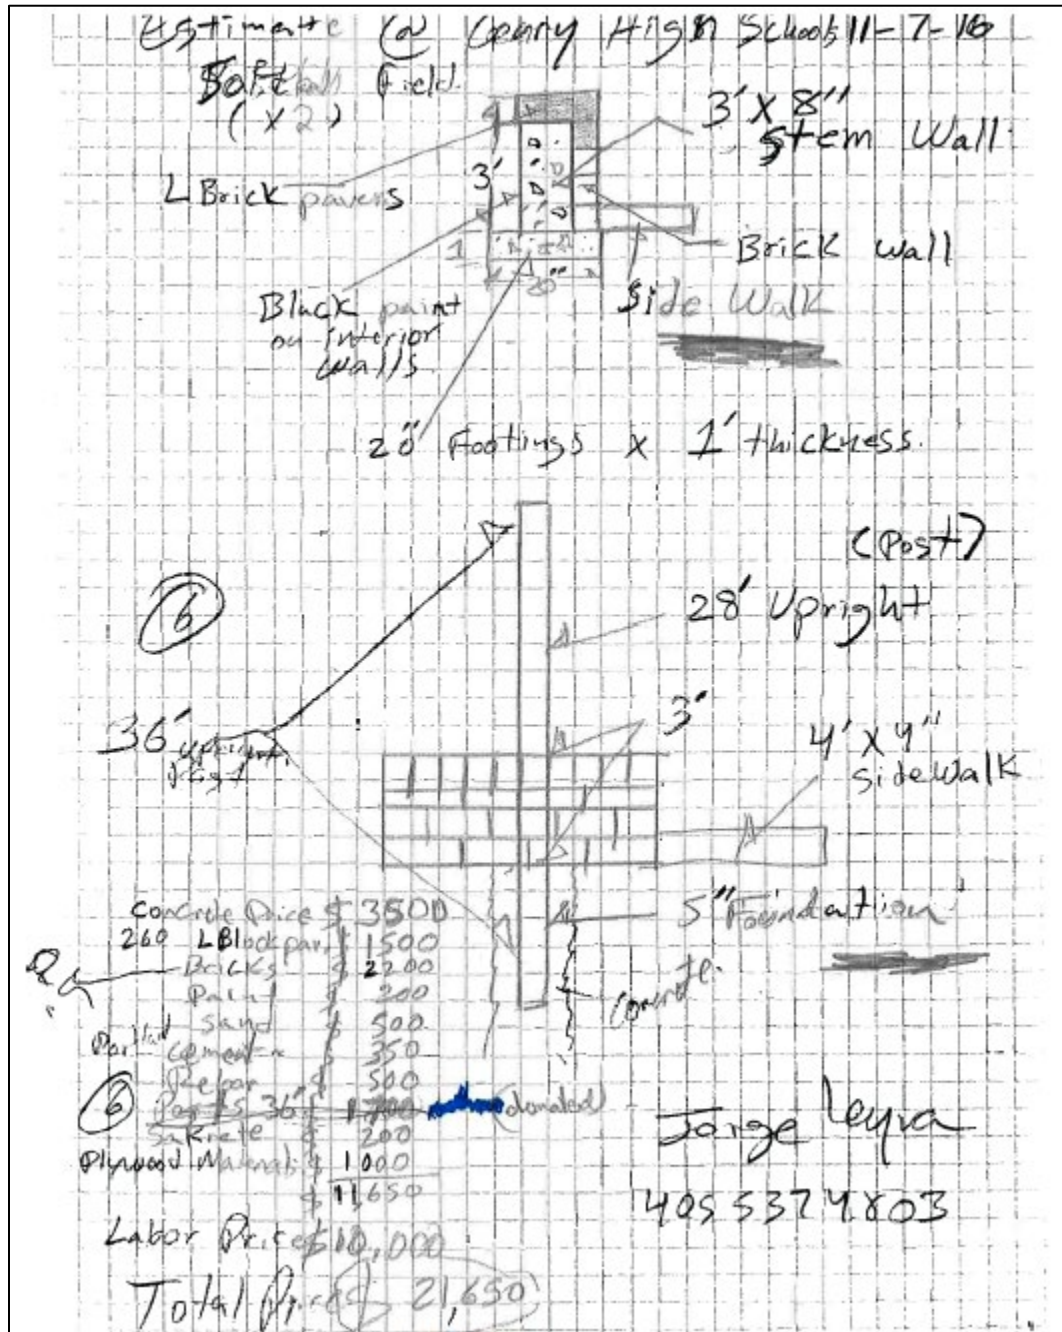 Estimate @ Geary High School 11-7-16
Softball Field.
(x2)
3' x 8"
Stem Wall
3'
L Brick pavers
Brick Wall
1
20"
Side Walk
Black paint
on interior
walls.
20" Footings x 1' thickness.
(Post)
6
28' Upright
3'
36' upright
Post
4' x 4"
Sidewalk
5" Foundation
Concrete.
Concrete Price $ 3500
260 L Block $ 1500
Bricks $ 2200
Paint $ 200
Sand $ 500
Cement $ 350
Rebar $ 500
6 36' $ 1700 (donated)
Sakrete $ 200
Plywood Materials $ 1000
$ 11650
Labor Price $ 10,000
Total Price $ 21,650
Jorge Leyva
405 537 4803